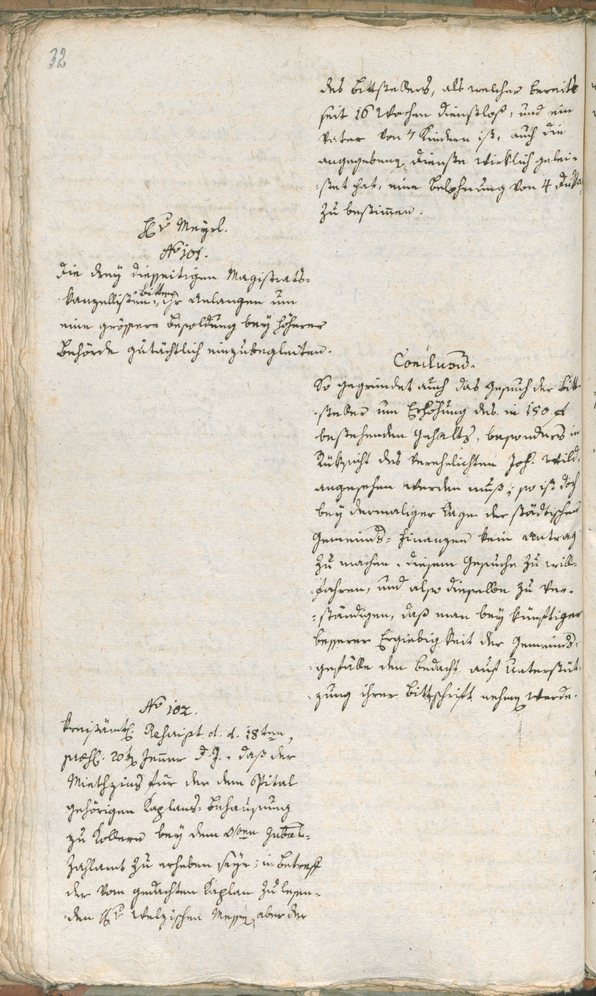 32
des Bittstellers, als welcher bereits
seit 16 Wochen dienstlos, und ein
Vater von 7 Kindern ist, auch die
angegebene Dienste wirklich gelei-
stet hat, eine Belohnung von 4 Duka
zu bestimmen.
Hr Meyrl.
No 101.
Die drey diesseitigen Magistrats-
kanzellisten bitten, ihr Anlangen um
eine grössere Besoldung bey höherer
Behörde gutächtlich einzubegleiten.
Conclusum.
So gegründet auch das Gesuch der Bitt-
steller um Erhöhung des in 150 f
bestehenden Gehalts, besonders in
Rüksicht des verehelichten Joh. Wild,
angesehen werden muß; so ist doch
bey dermaliger Lage der städtischen
Gemeinds-Finanzen kein Antrag
zu machen, diesem Gesuche zu will-
fahren, und also dieselbe zu ver-
ständigen, daß man bey künftiger
besserer Ergiebigkeit der Gemeinds-
gefälle den Bedacht auf Unterstüt-
zung ihrer Bittschrift nehmen werde.
No 102.
Kreisämtl. d. d. 18ten,
20ten Jenner d. J., daß der
Miethzins für der dem Spital
gehörigen Kaplans-Behausung
zu bey dem
Zahlamt zu erheben seye; in Betreff
der vom gedachten Kaplan zu lesen-
den Welzischen Messen aber der